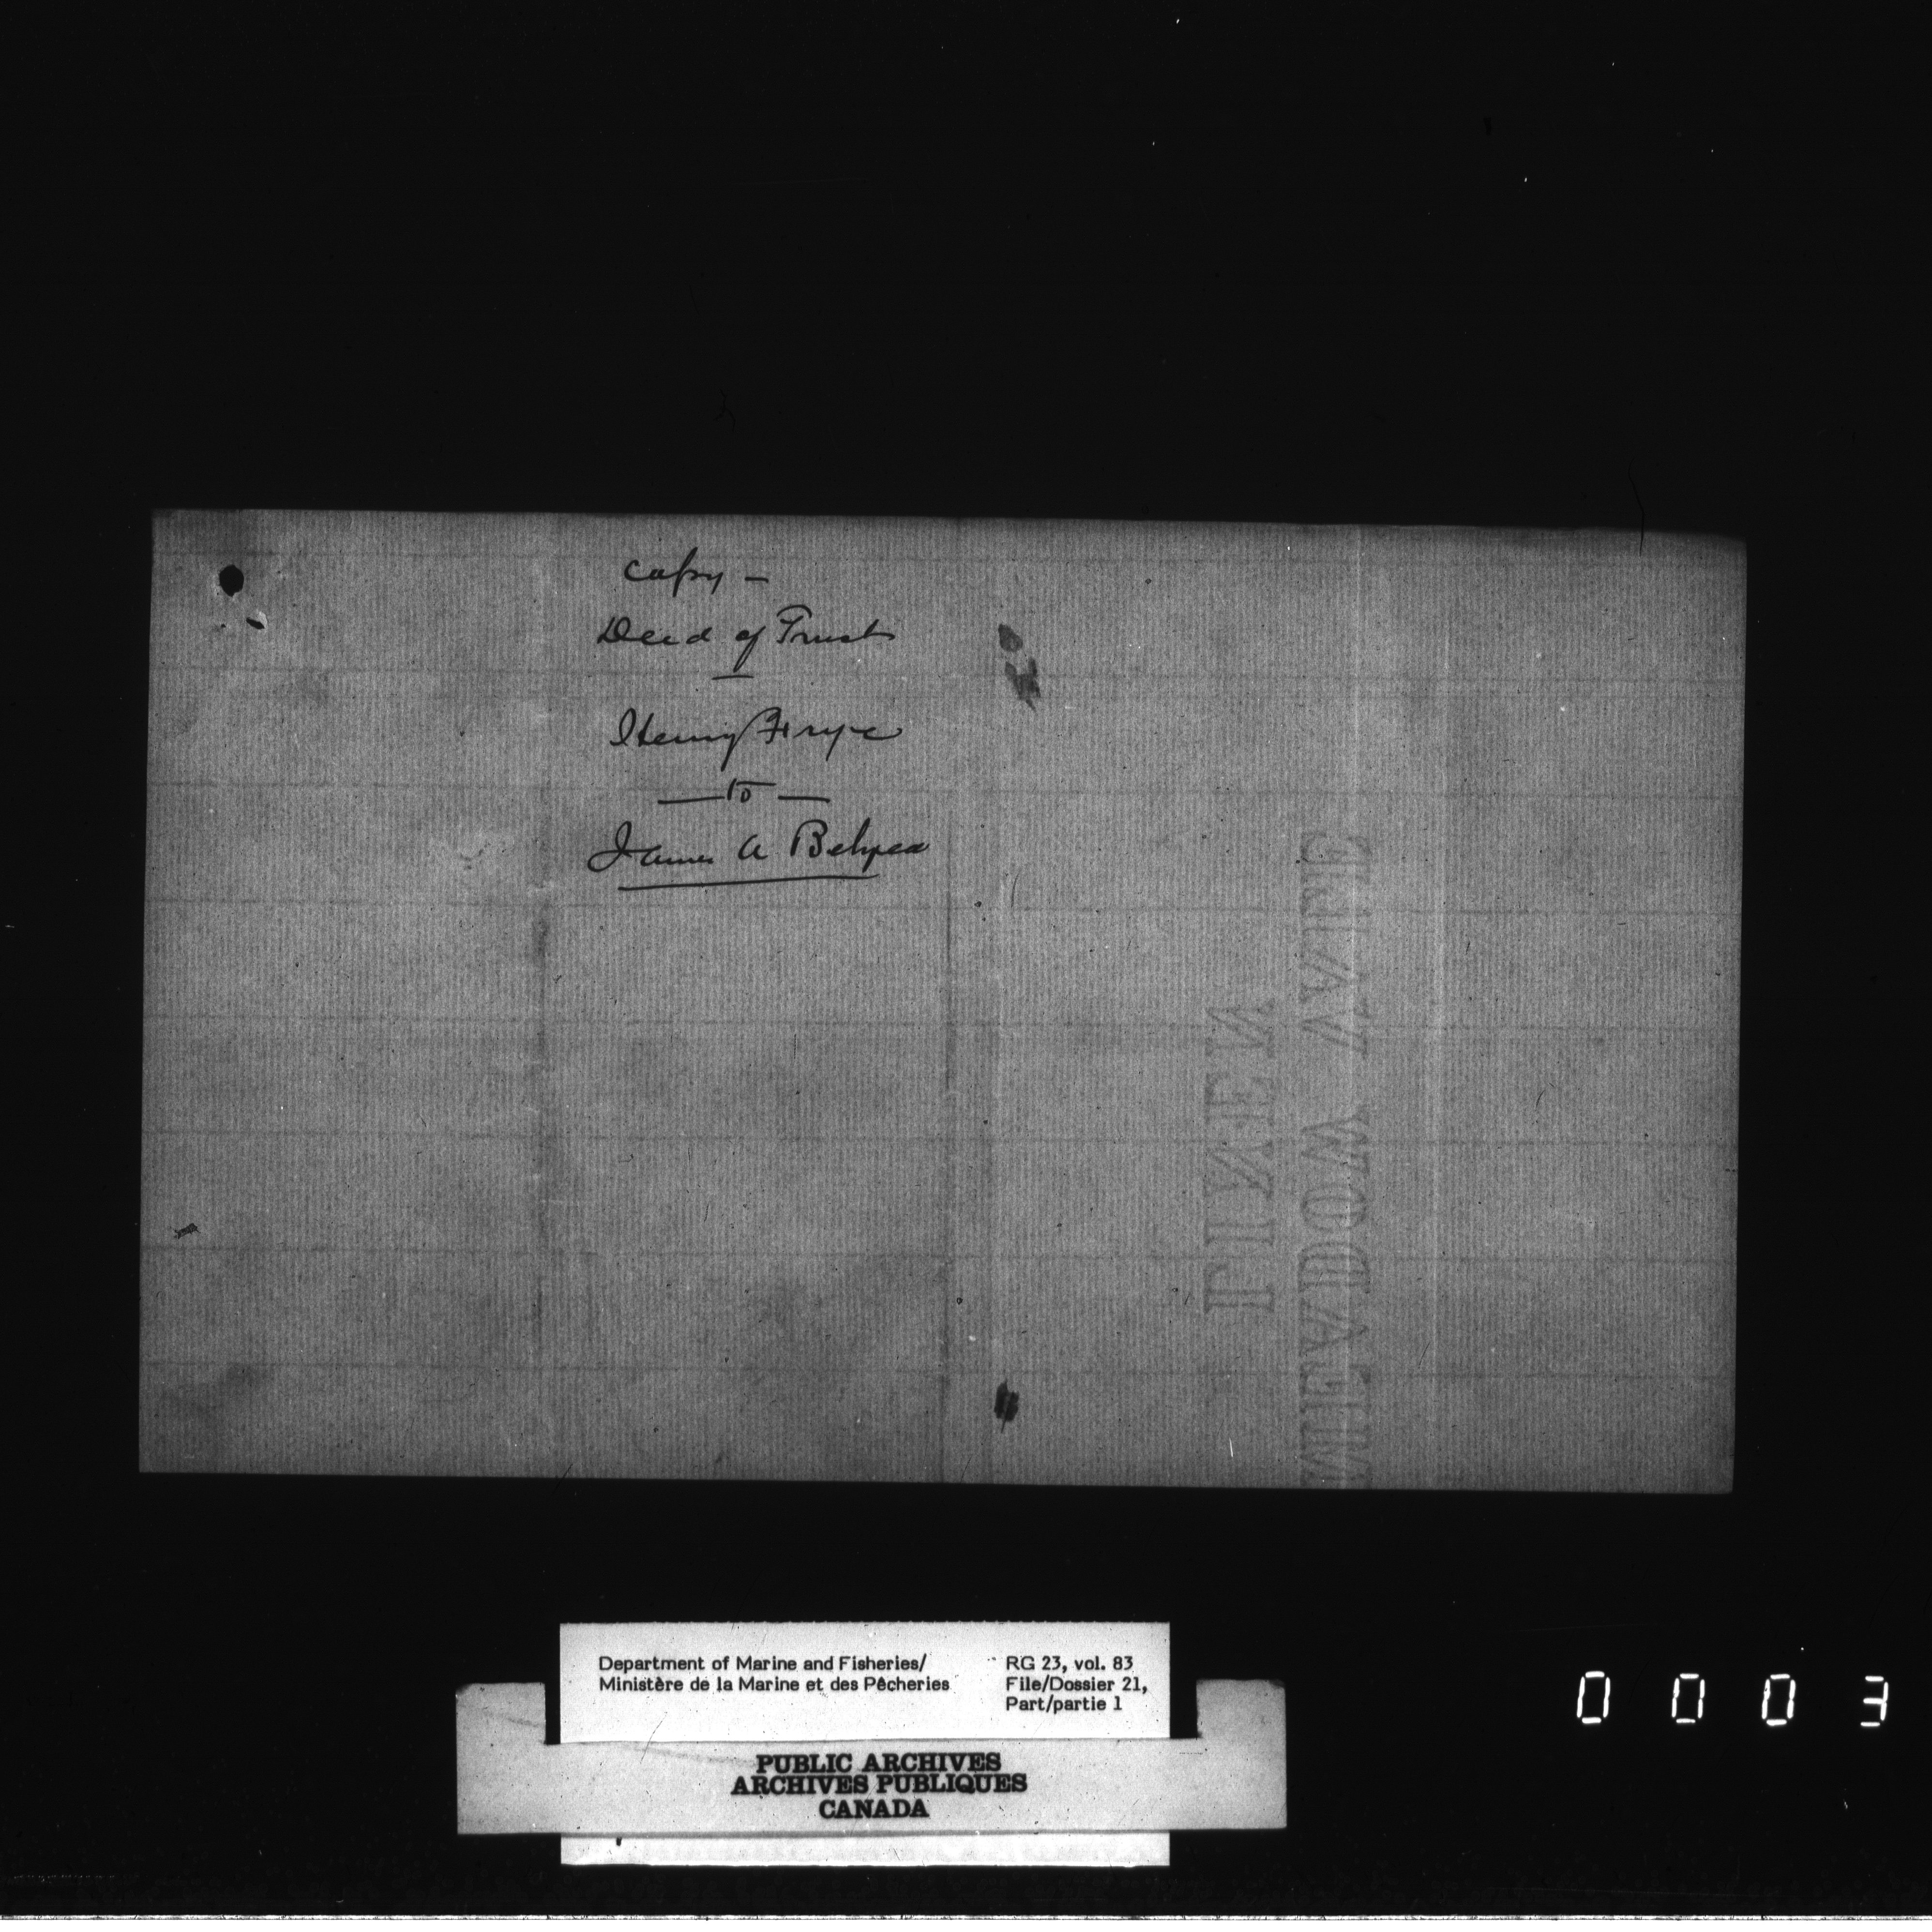 copy –
Deed of Trust
Henry Frye
— to —
James A Belyea
MEADOW VALE
LINEN
Department of Marine and Fisheries/
Ministère de la Marine et des Pêcheries
RG 23, vol. 83
File/Dossier 21,
Part/partie 1
PUBLIC ARCHIVES
ARCHIVES PUBLIQUES
CANADA
0003